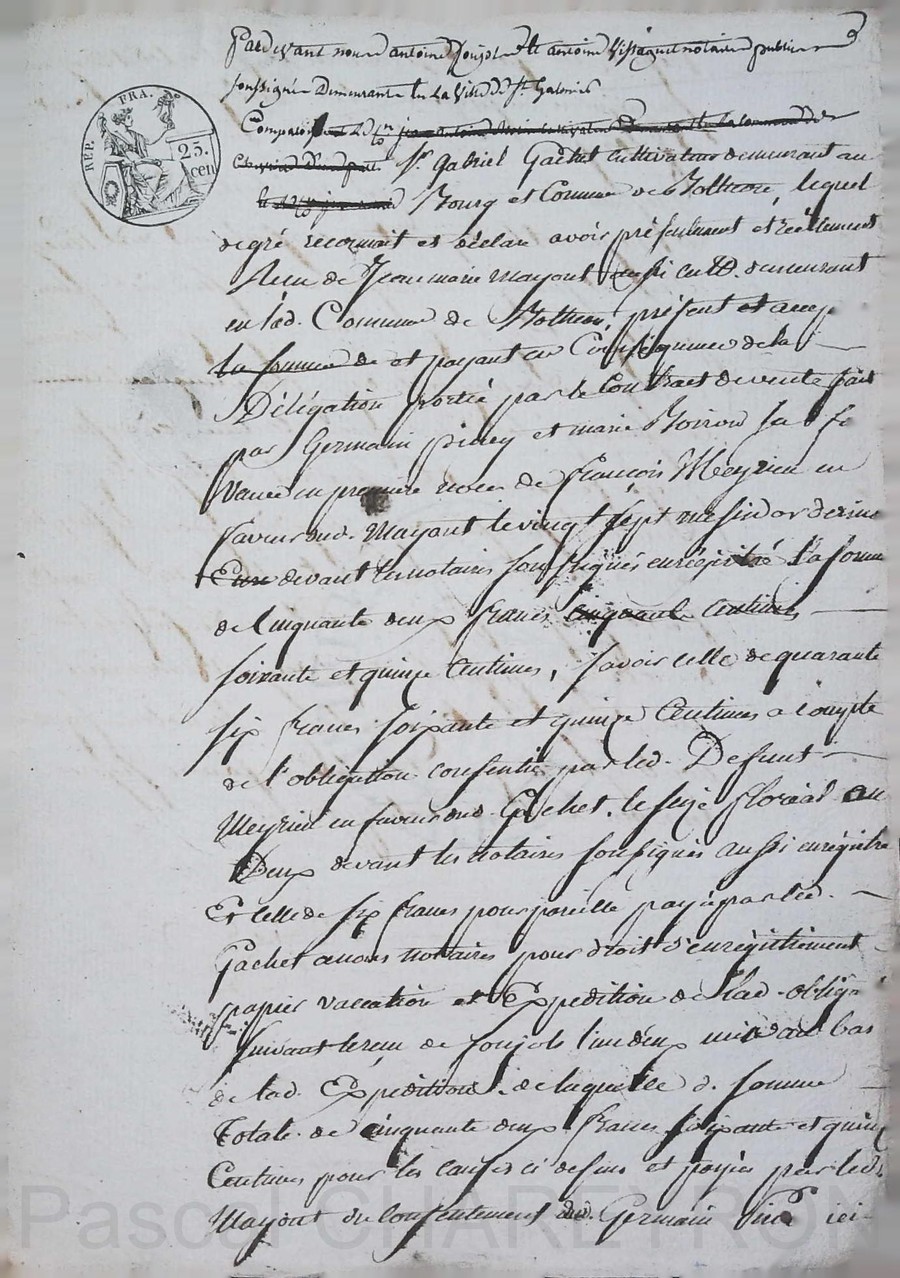 Pardevant nous antoine Soujols et antoine Vissaguet notaires publics
soussignés Demeurants en La Ville de St. Galmier
REP. FRA.
25. cen
Comparoit
Sr. Gabriel Gachet cultivateur demeurant au
Bourg et Commune de Boltheon, lequel
de gré reconnoit et déclare avoir présentement et réellement
Recu de Jean marie mayont aussi cult. demeurant
en lad. Commune de Bolthéon, présent et accep
la somme de et payant en Conséquence de la
Délégation portée par le Contract de vente fait
par Germain piney et marie Boiron sa fe
Vance en première noces de François Meyrieu en
faveur dud. Mayont le vingt sept messidor dernier
devant les notaires soussignés enrégistré La somme
de Cinquante deux francs cinquante Centimes
soixante et quinze Centimes, savoir celle de quarante
six francs soixante et quinze Centimes a compte
de l'obligation consentie par led. Defunt
Meyrieu en faveur dud. Gachet, le seize floréal an
Deux devant les notaires soussignés aussi enrégistré
Et celle de six francs pour pareille payée par led.
Gachet a nous notaires pour droit d'enrégistrement
papier vaccation et Expedition de Lad. oblig.
suivant le recu de Soujols l'un deux mis au bas
de lad. Expedition, de laquelle d. somme
Totale de cinquante deux francs soixante et quinze
Centimes pour les causes ci dessus et payée par led.
Mayont du consentement dud. Germain ici
Pascal CHAREYRON